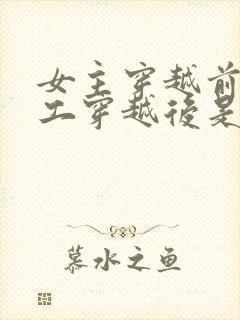 女主穿越前
工穿越後是
慕水之鱼